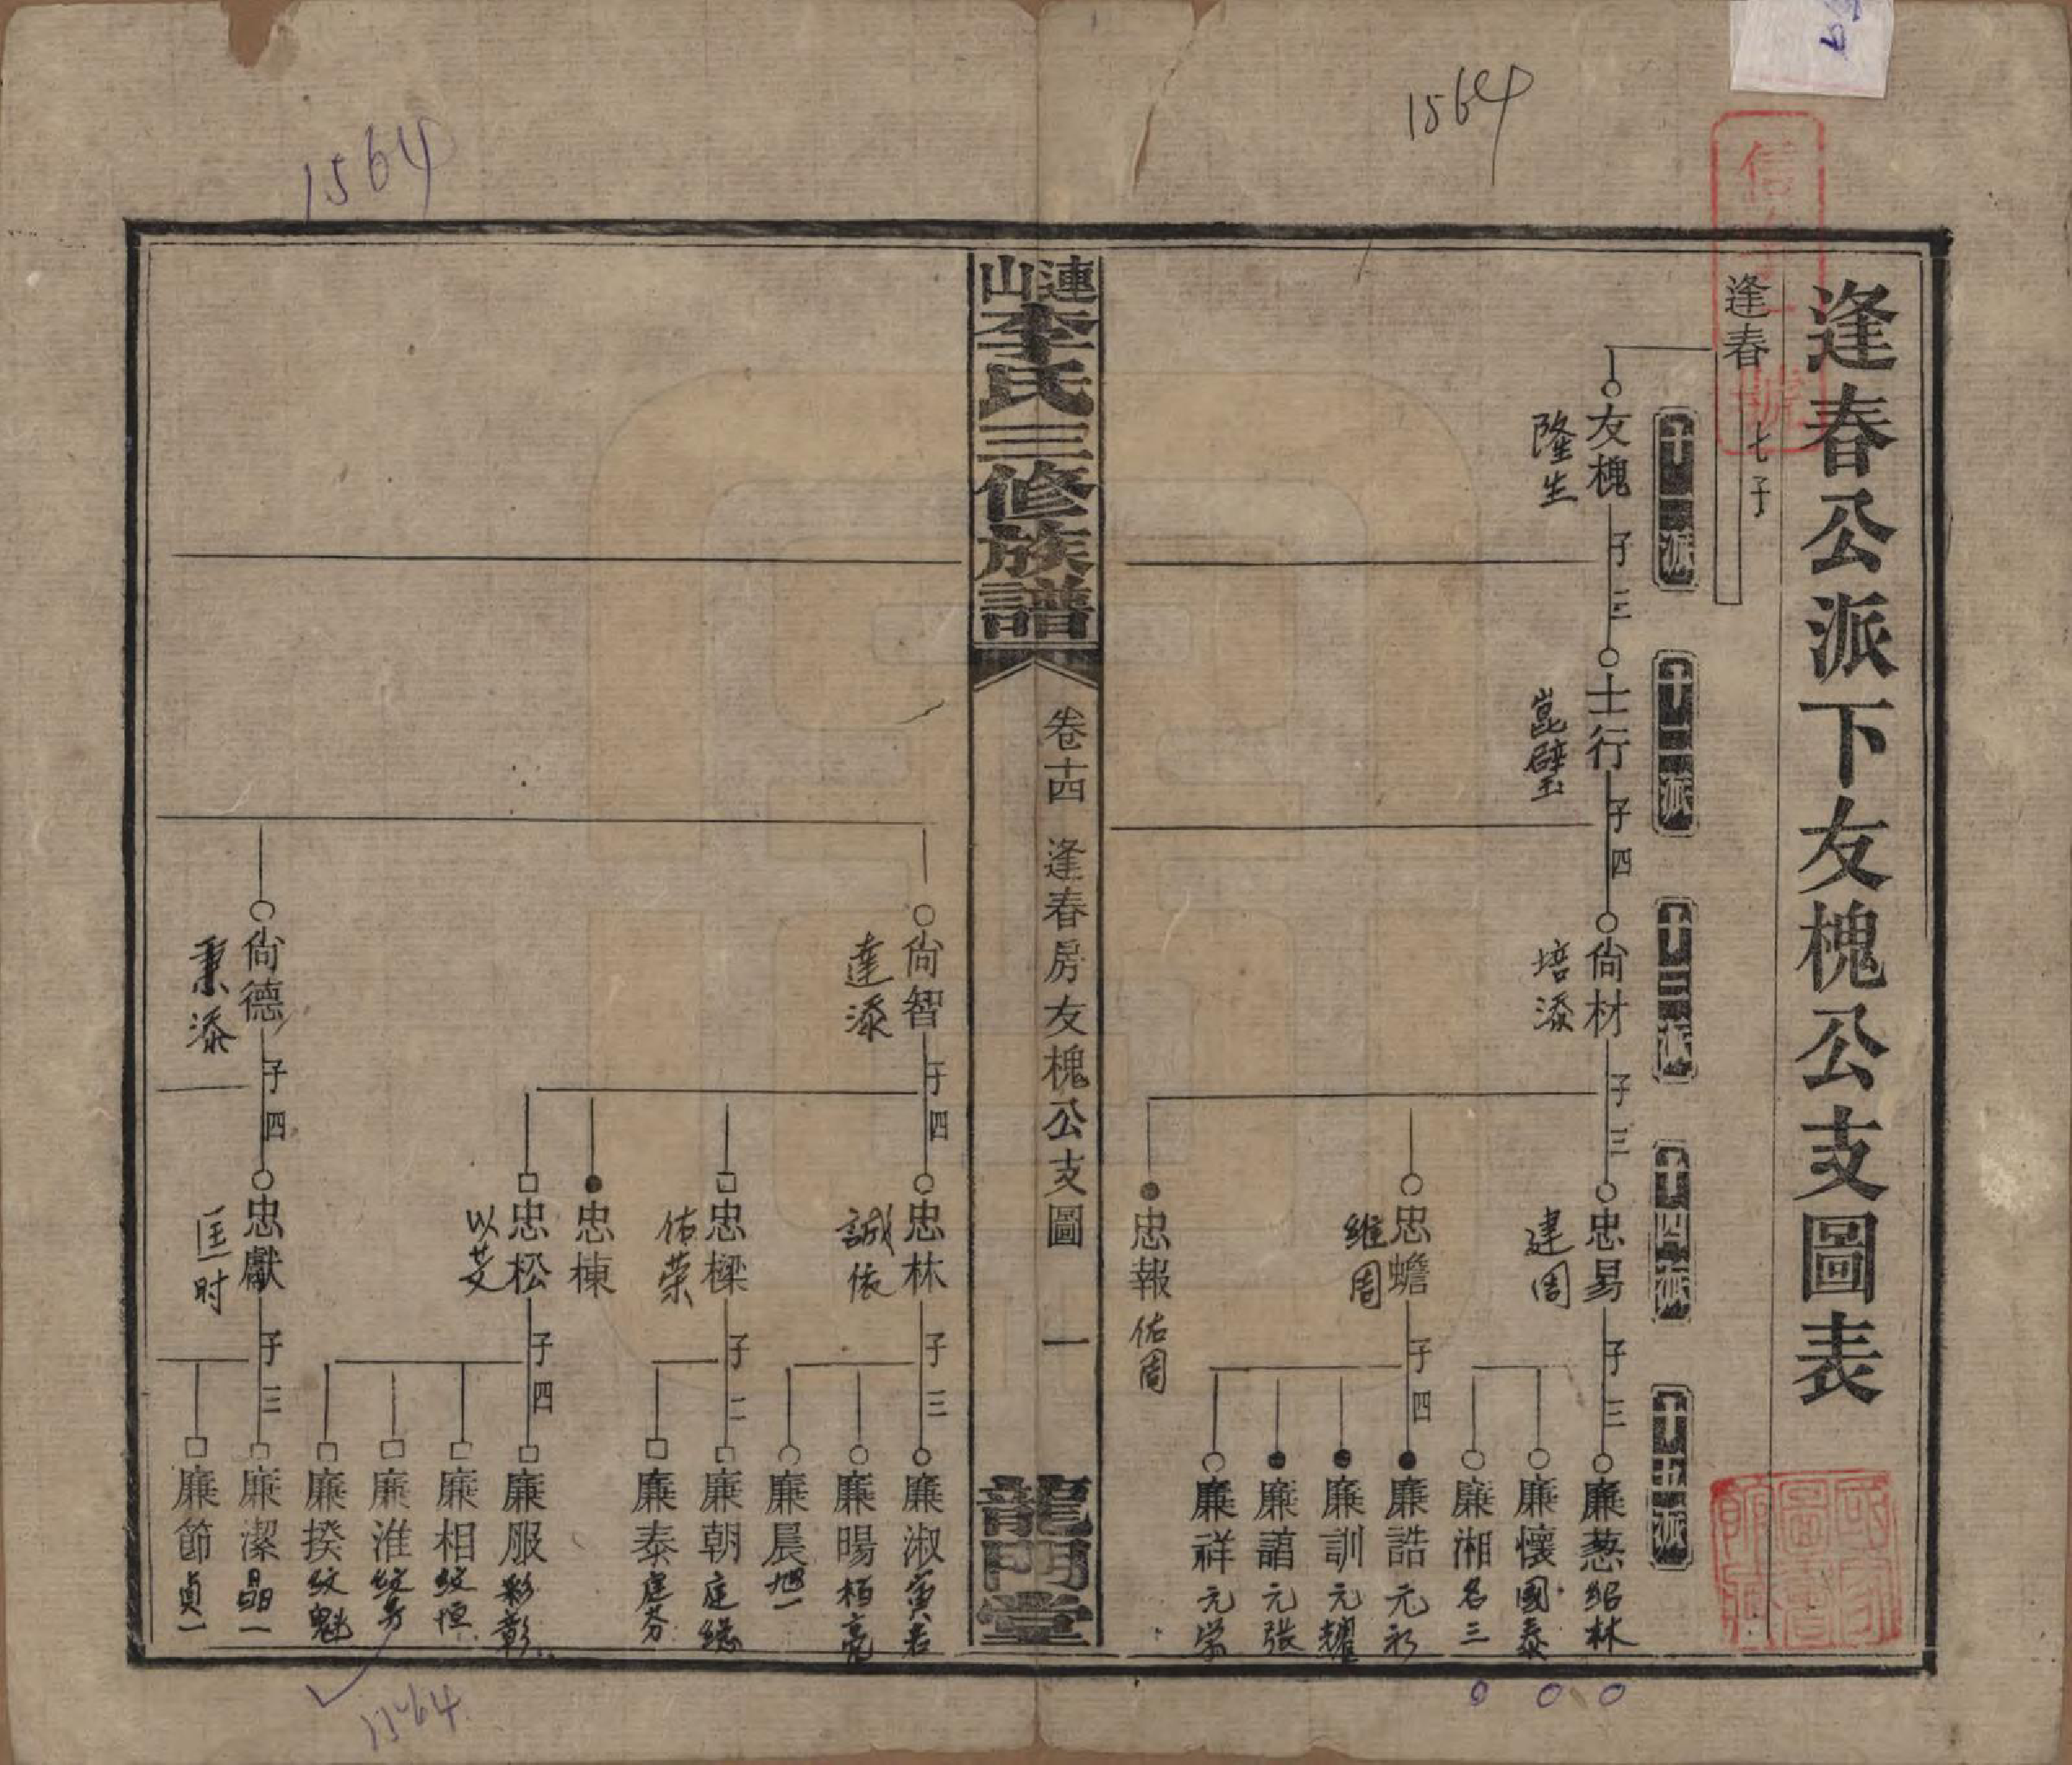 1564
1564
逢春公派下友槐公支圖表
逢春 七子
十一派
十二派
十三派
十四派
十五派
友槐 子三
隆生
士行 子四
崑璧
尙材 子三
培添
忠易 子三
建周
廉葱 紹林
廉懷 國泰
廉湘 名三
忠蟾 子四
維周
廉誥 元礽
廉訓 元耀
廉謟 元張
廉祥 元荣
忠報 佑周
連山李氏三修族譜
卷十四 逢春房友槐公支圖 一
龍門堂
尙智 子四
達添
忠林 子三
誠依
廉淑 寅若
廉暘 栢亮
廉晨 旭一
忠樑 子二
佑荣
廉朝 庭緣
廉泰 庭芬
忠棟
忠松 子四
以芟
廉服 彩彰
廉相 紋恒
廉淮 紋芳
廉揆 紋魁
尙德 子四
秉添
忠獻 子三
匡时
廉潔 晶一
廉節 貞一
1564